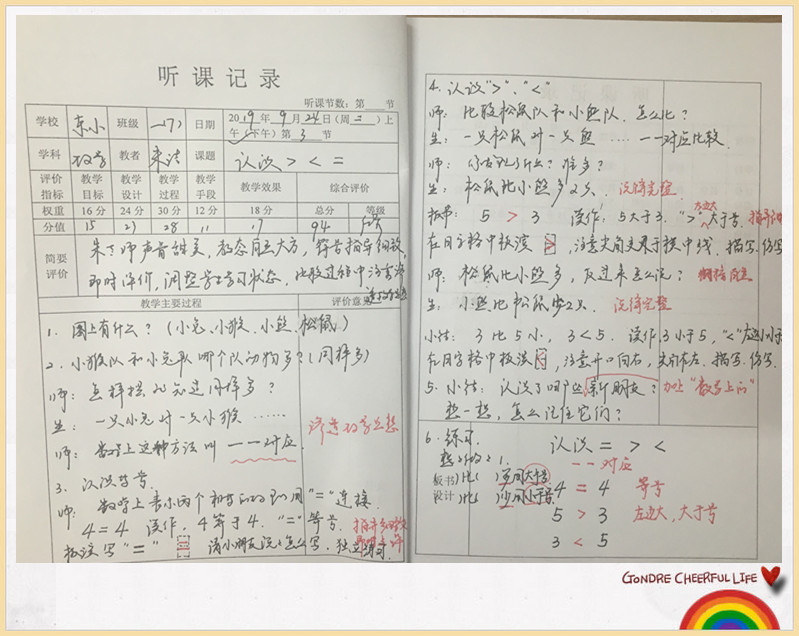 听课记录
听课节数：第 节
学校 东小 班级 一(7) 日期 2019年9月24日(周二)上
午(下午)第3节
学科 数学 教者 课题 认识 > < =
评价 教学 教学 教学 教学 教学效果 综合评价
指标 目标 设计 过程 手段
权重 16分 24分 30分 12分 18分 总分 等级
分值 15 23 28 11 17 94
简要
评价
朱 老师声音甜美，教态自然大方，符号指导细致，
即时评价，调整学生学习状态，比较过程中注意渗
透 思想
教学主要过程 评价意
1. 图上有什么？(小兔、小猴、小熊、松鼠)
2. 小猴队和小兔队哪个队动物多？(同样多)
师：怎样摆 同样多？
生：一只小兔对一只小猴 ……
师：数学上这种方法叫 一一对应. 渗透数学思想
3. 认识等号.
师：数学上表示两个相等的 用 "=" 连接.
4=4 读作，4等于4. "=" 等号.
板演写 "=" 请小朋友说说怎么写，独立
4. 认识 ">"、"<"
师：比较松鼠队和小熊队. 怎么比？
生：一只松鼠对一只熊 …… 一一对应比较.
师：你 什么？谁多？
生：松鼠比小熊多2只. 说得完整
板书：5 > 3 读作：5大于3. ">" 左边大 大于号.
在田字格中板演 >，注意尖角 横中线. 描写. 仿写
师：松鼠比小熊多，反过来怎么说？
生：小熊比松鼠少2只. 说得完整
小结：3比5小，3<5. 读作3小于5，"<" 左边小小于
在田字格中板演 <，注意开口向右，尖 左. 描写. 仿写.
5. 小结：认识了哪些新朋友？ 加上"数学上的"
想一想，怎么记住它们？
6. 练习.
想想做做1.
板书
设计
认识 = > <
一一对应
( )比( )多用大于号
( )比( )少用小于号
4 = 4 等号
5 > 3 左边大，大于号
3 < 5
GONDRE CHEERFUL LIFE